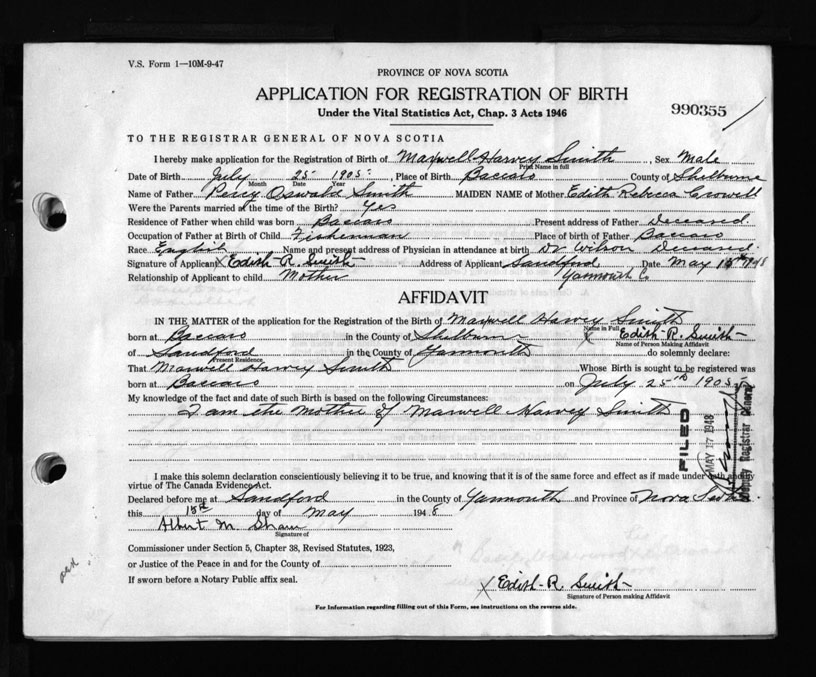 V.S. Form 1—10M-9-47
PROVINCE OF NOVA SCOTIA
APPLICATION FOR REGISTRATION OF BIRTH
Under the Vital Statistics Act, Chap. 3 Acts 1946
990355
TO THE REGISTRAR GENERAL OF NOVA SCOTIA
I hereby make application for the Registration of Birth of Maxwell Harvey Smith, Sex Male
Print Name in full
Date of Birth July 25 1905, Place of Birth Baccaro County of Shelburne
Month Date Year
Name of Father Percy Oswald Smith MAIDEN NAME of Mother Edith Rebecca Crowell
Were the Parents married at the time of the Birth? Yes
Residence of Father when child was born Baccaro Present address of Father Deceased.
Occupation of Father at Birth of Child Fisherman Place of birth of Father Baccaro
Race English Name and present address of Physician in attendance at birth Dr Wilson Deceased.
Signature of Applicant X Edith R. Smith Address of Applicant Sandford Date May 1948
Relationship of Applicant to child Mother Yarmouth Co
AFFIDAVIT
IN THE MATTER of the application for the Registration of the Birth of Maxwell Harvey Smith
Name in Full
born at Baccaro in the County of Shelburne X Edith R. Smith
Name of Person Making Affidavit
of Sandford in the County of Yarmouth do solemnly declare:
Present Residence
That Maxwell Harvey Smith Whose Birth is sought to be registered was
born at Baccaro on July 25th 1905
My knowledge of the fact and date of such Birth is based on the following Circumstances:
I am the Mother of Maxwell Harvey Smith
FILED
MAY 17 1948
Deputy Registrar General
I make this solemn declaration conscientiously believing it to be true, and knowing that it is of the same force and effect as if made under oath and by
virtue of The Canada Evidence Act.
Declared before me at Sandford in the County of Yarmouth and Province of Nova Scotia
this day of May 1948
Albert M. Shaw
Signature of
Commissioner under Section 5, Chapter 38, Revised Statutes, 1923,
or Justice of the Peace in and for the County of
If sworn before a Notary Public affix seal.
X Edith R. Smith
Signature of Person making Affidavit
For Information regarding filling out of this Form, see instructions on the reverse side.